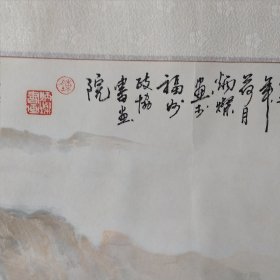 年
荷月
炳灿
画于
福州
政协
书画
院